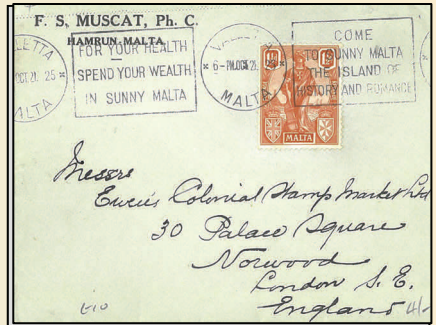 F. S. MUSCAT, Ph. C.
HAMRUN-MALTA
VALLETTA
OCT 21 25
MALTA
FOR YOUR HEALTH
SPEND YOUR WEALTH
IN SUNNY MALTA
VALLETTA
6-PM OCT 21 25
MALTA
COME
TO SUNNY MALTA
THE ISLAND OF
HISTORY AND ROMANCE
MALTA
Messrs
Ewen's Colonial Stamp Market Ltd
30 Palace Square
Norwood
London S. E.
England
4/-
£10